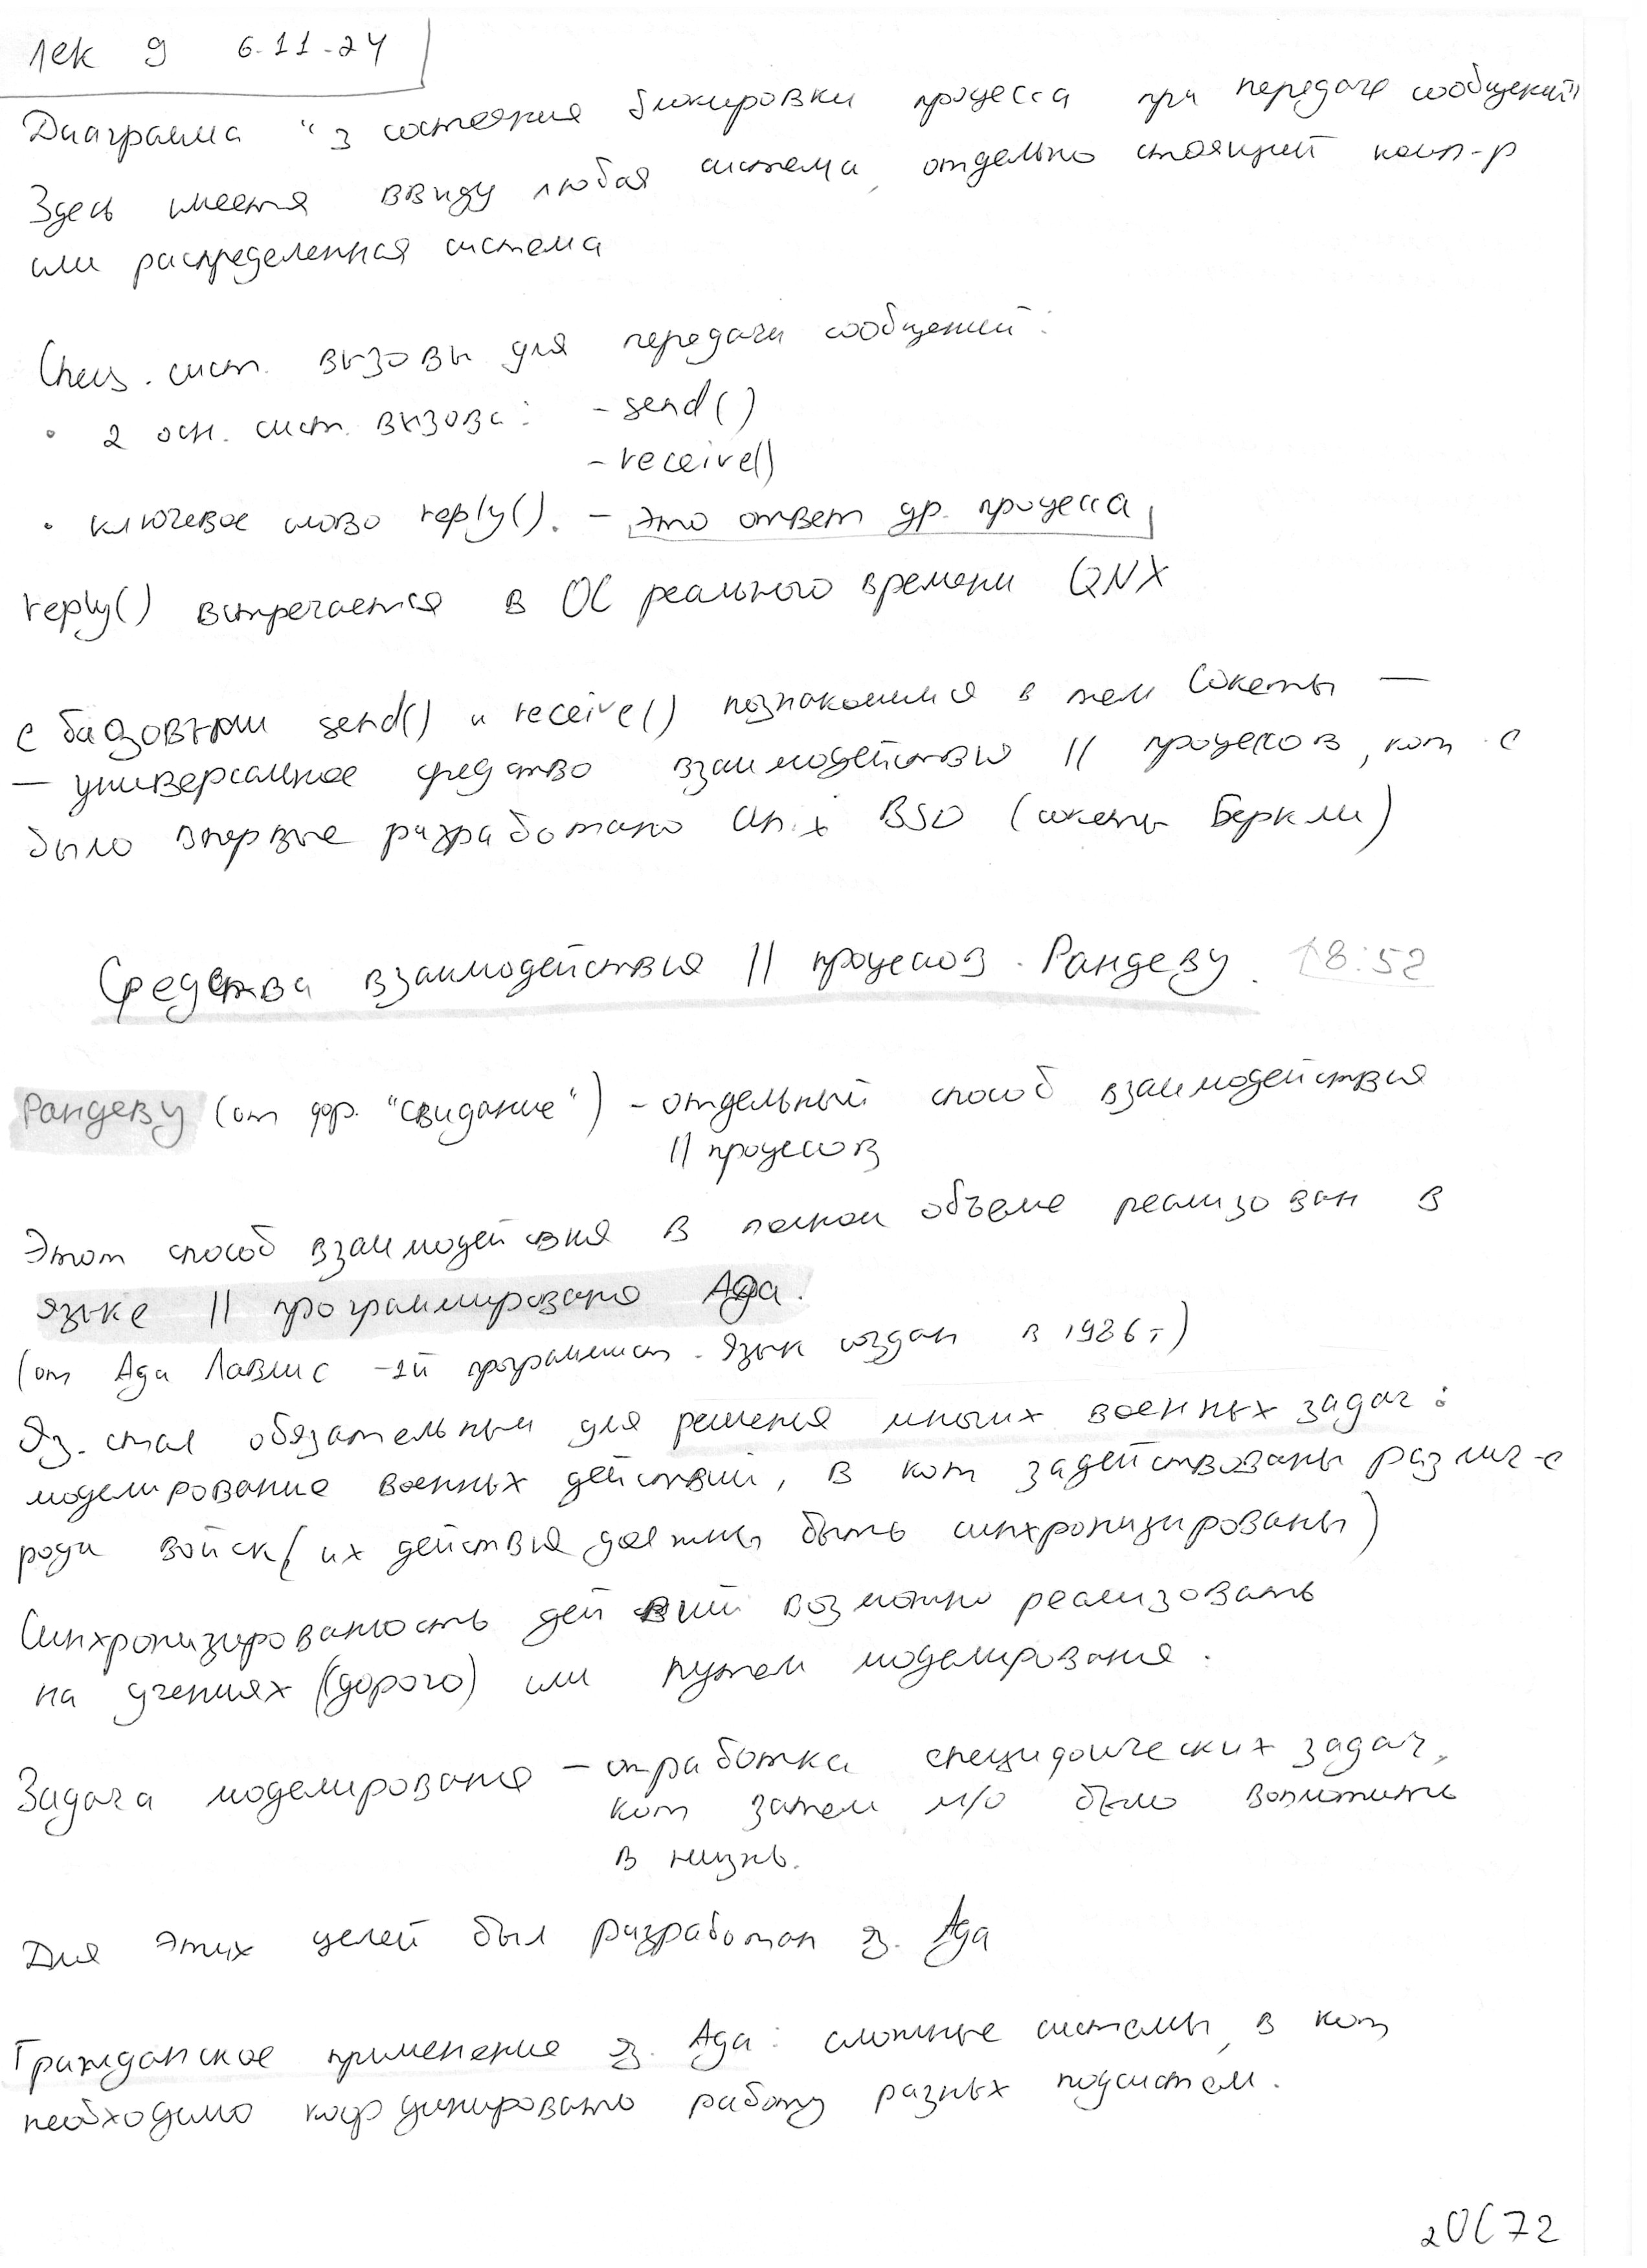 лек 9 6.11.24
Диаграмма "3 состояния блокировки процесса при передаче сообщений"
Здесь имеется ввиду любая система, отдельно стоящий комп-р
или распределенная система
Спец. сист. вызовы для передачи сообщений:
• 2 осн. сист. вызова: - send()
- receive()
• ключевое слово reply(). - это ответ др. процесса
reply() встречается в ОС реального времени QNX
с базовыми send() и receive() познакомимся в тем Сокеты —
— универсальное средство взаимодействию || процессов, кот. с
было впервые разработано Unix BSD (сокеты Беркли)
Средства взаимодействия || процессов. Рандеву. 18:52
Рандеву (от фр. "свидание") - отдельный способ взаимодействия
|| процессов
Этот способ взаимодействия в полном объеме реализован в
языке || программировано Ада.
(от Ада Лавлис -1й программист. Язык создан в 1986 г)
Яз. стал обязательным для решения многих военных задач:
моделирование военных действий, в кот задействованы различ-е
рода войск (их действия должны быть синхронизированы)
Синхронизированность действий возможно реализовать
на учениях (дорого) или путем моделирования.
Задача моделирования - отработка специфических задач,
кот затем м/о было воплотить
в жизнь.
Для этих целей был разработан яз. Ада
Гражданское применение яз. Ада: сложные системы, в кот
необходимо координировать работу разных подсистем.
2ОС72